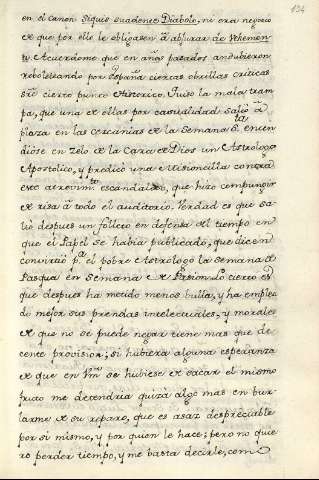 134
en el canon Siquis suadente Diabolo, ni era negocio
de que por ello le obligasen à abjurar de Vehemen
ti. Acuerdome que en años pasados anduvieron
reboleteando por España ciertas obrillas criticas
sre cierto punto Historico. Quiso la mala tram
pa, que una de ellas por casualidad salió à
plaza en las cercanias de la Semana Sta, encen
diose en zelo de la Casa de Dios un Astrologo
Apostolico, y predicó una Misioncilla contra
este atrevimto escandaloso, que hizo compungir
de risa à todo el auditorio. Verdad es que sa
lió despues un folleto en defensa del tiempo en
que el Papel se habia publicado, que dicen
convirtió pa el pobre Astrologo la Semana de
Pasqua en Semana de Pasion. Lo cierto es
que despues ha metido menos bulla, y ha emplea
do mejor sus prendas intelectuales, y morales
de que no se puede negar tiene mas que de
cente provision; si hubiera alguna esperanza
de que en Vm se hubiese de sacar el mismo
fruto me detendria quizá algo mas en bur
larme de su reparo, que es asaz despreciable
por si mismo, y por quien le hace; pero no quie
ro perder tiempo, y me basta decirle, como